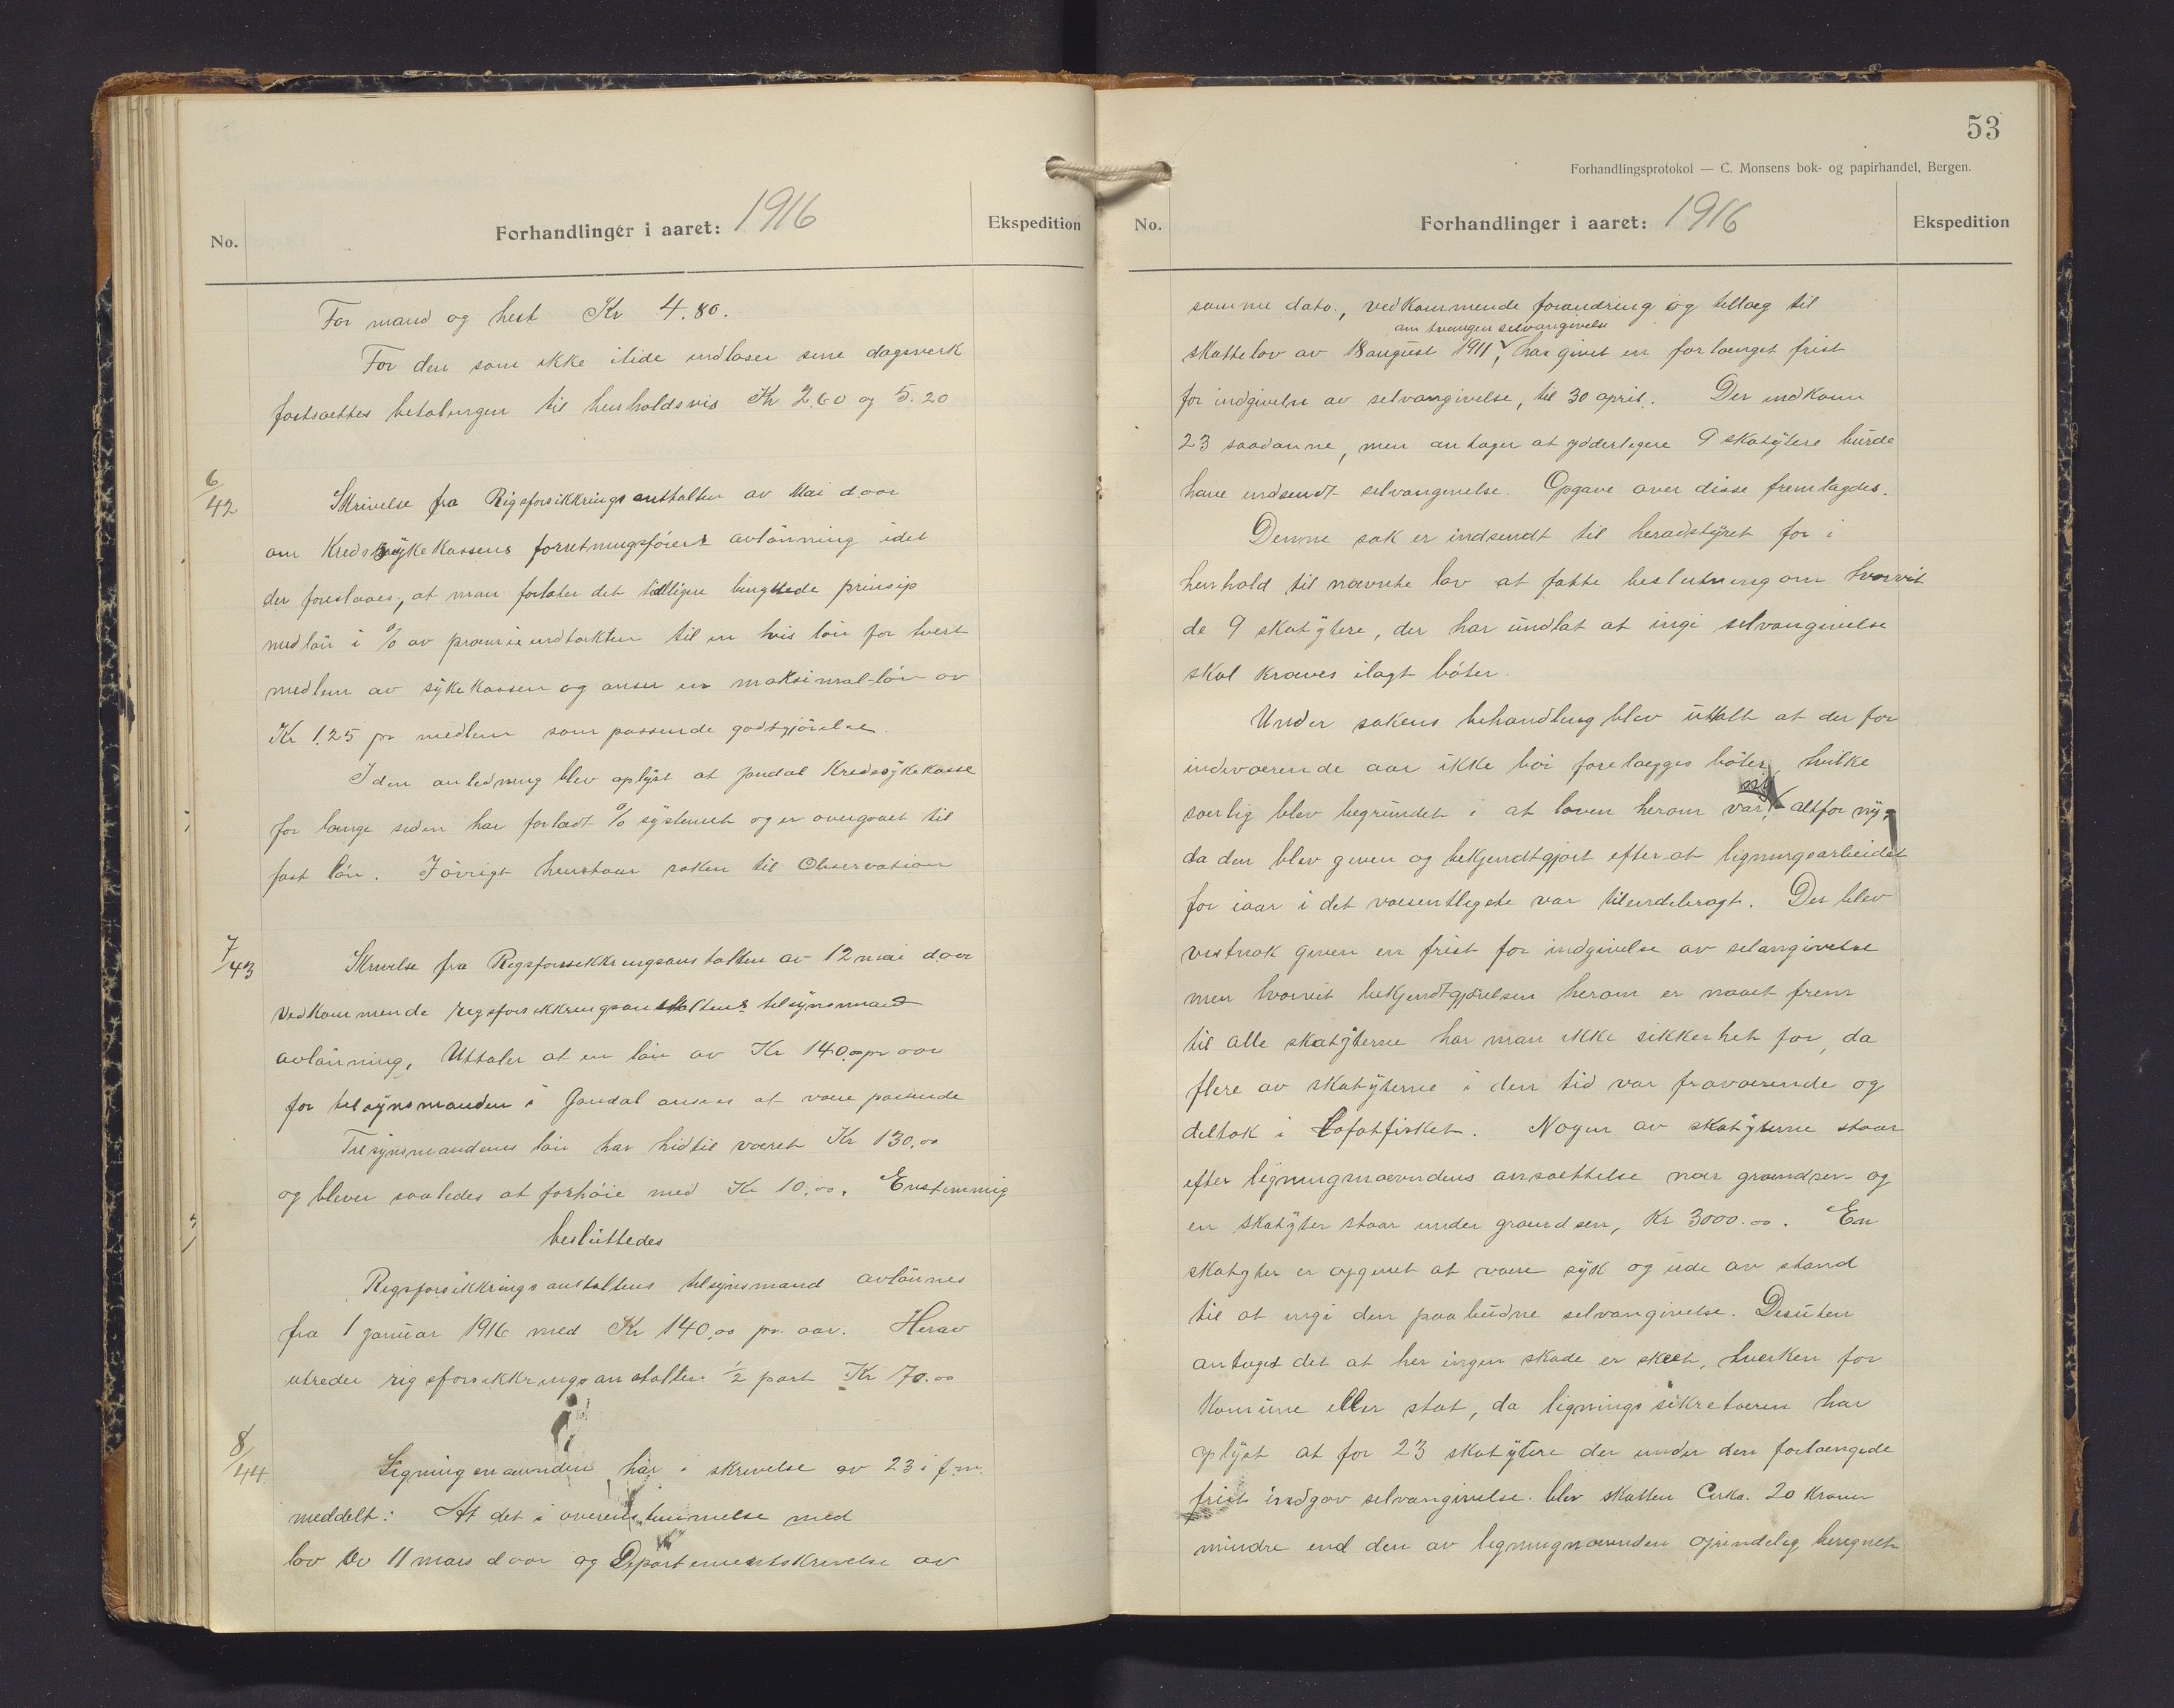 No.
Forhandlinger i aaret: 1916
Ekspedition
For mand og hest Kr 4.80.
For den som ikke itide indløser sine dagsverk
fastsættes betalingen til henholdsvis Kr 2.60 og 5.20
6/42
Skrivelse fra Rigsforsikkringsanstalten av Mai d.aar
om Kredssykekassens forretningsförers avlönning idet
der foreslaaes, at man forlater det tidligere benyttede prinsip
med lön i % av præmieindtækten til en vis lön for hvert
medlem av sykekassen og anser en maksimal-lön av
Kr 1.25 pr medlem som passende godtgjörelse.
I den anledning blev oplyst at Jondal Kredssykekasse
for længe siden har forladt % systemet og er overgaaet til
fast lön. Iövrigt henstaar saken til Observation
7/43
Skrivelse fra Rigsforsikkringsanstalten av 12 mai d.aar
vedkommende rigsforsikkringsanstaltens tilsynsmand
avlönning, Uttaler at en lön av Kr 140.00 pr aar
for tilsynsmanden i Jondal ansees at være passende
Tilsynsmandens lön har hidtil været Kr 130.00
og blever saaledes at forhöie med Kr 10.00. Enstemmig
besluttedes
Rigsforsikkringsanstaltens tilsynsmand avlönnes
fra 1 januar 1916 med Kr 140.00 pr. aar. Herav
utreder rigsforsikkringsanstalten 1/2 part Kr 70.00
8/44
Ligningsnævnden har i skrivelse av 23 i f.m.
meddelt: At det i overenstemmelse med
lov av 11 mars d aar og Departementskrivelse av
53
Forhandlingsprotokol — C. Monsens bok- og papirhandel, Bergen.
No.
Forhandlinger i aaret: 1916
Ekspedition
samme dato., vedkommende forandring og tillæg til
om tvungen selvangivelse
skattelov av 18 august 1911, har givet en forlænget frist
for indgivelse av selvangivelse, til 30 april. Der indkom
23 saadanne, men antager at ydderligere 9 skatytere burde
have indsendt selvangivelse. Opgave over disse fremlagdes.
Denne sak er indsendt til heradstyret for i
henhold til nævnte lov at fatte beslutning om hvorvit
de 9 skatytere, der har undlat at ingi selvangivelse
skal kræves ilagt böter.
Under sakens behandling blev uttalt at der for
indeværende aar ikke bör forelægges böter, hvilke
særlig blev begrundet i at loven herom var altfor ny,
da den blev given og bekjendtgjort efter at ligningsarbeidet
for iaar i det væsentligste var tilendebragt. Der blev
vistnok given en frist for indgivelse av selangivelse
men hvorvit bekjendtgjörelsen herom er naaet frem
til alle skatyterne har man ikke sikkerhet for, da
flere av skatyterne i den tid var fraværende og
deltok i Lofotfisket. Nogen av skatyterne staar
efter ligningsnævndens ansættelse nær grændsen og
en skatyter staar under grændsen, Kr 3000.00. En
skatyter er opgivet at være syk og ude av stand
til at ingi den paabudne selvangivelse. Desuten
antages det at her ingen skade er skeet, hverken for
Komune eller stat, da ligningssikretæren har
oplyst at for 23 skatytere der under den forlængede
frist indgav selvangivelse blev skatten Cirka. 20 Kroner
mindre end den av ligningnævnden oprindelig beregnet